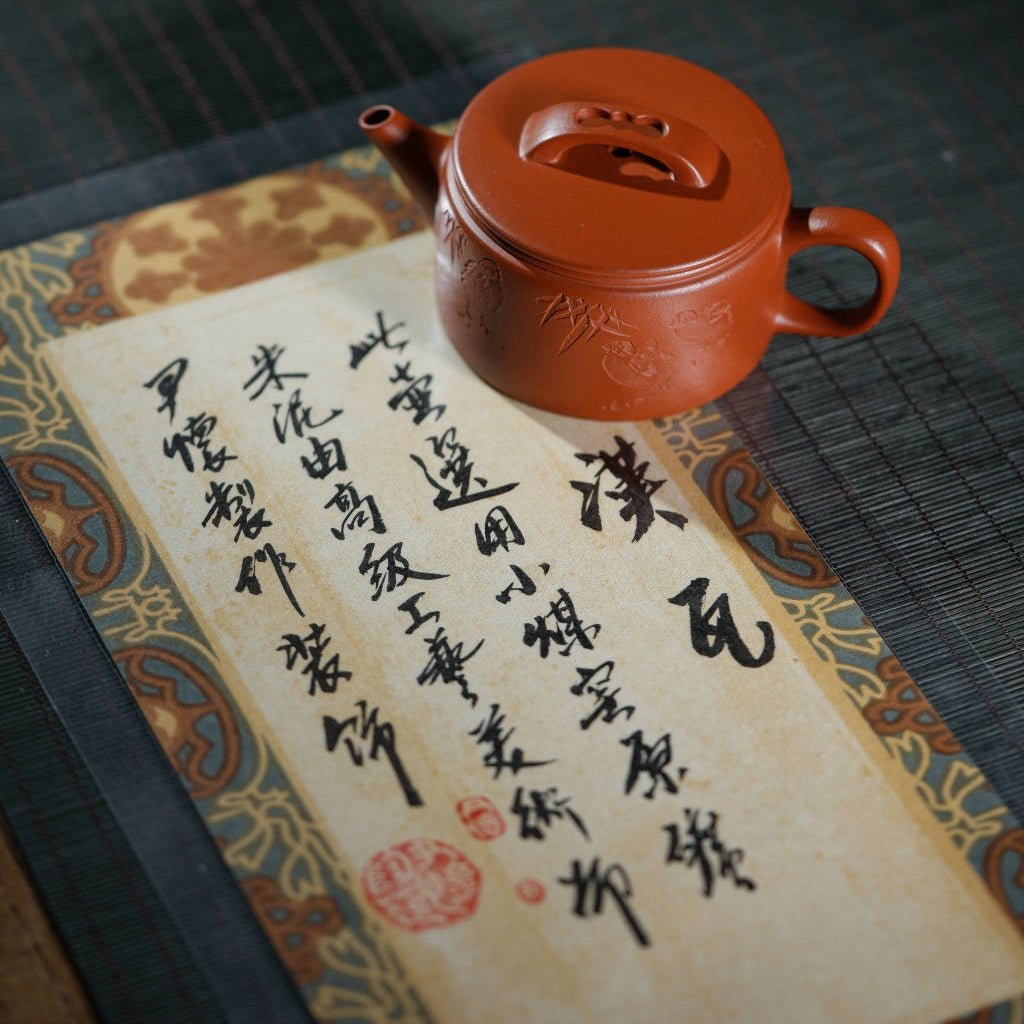 漢瓦
此壺選用小煤窑原礦
朱泥由高級工藝美術師
尹懷製作裝飾